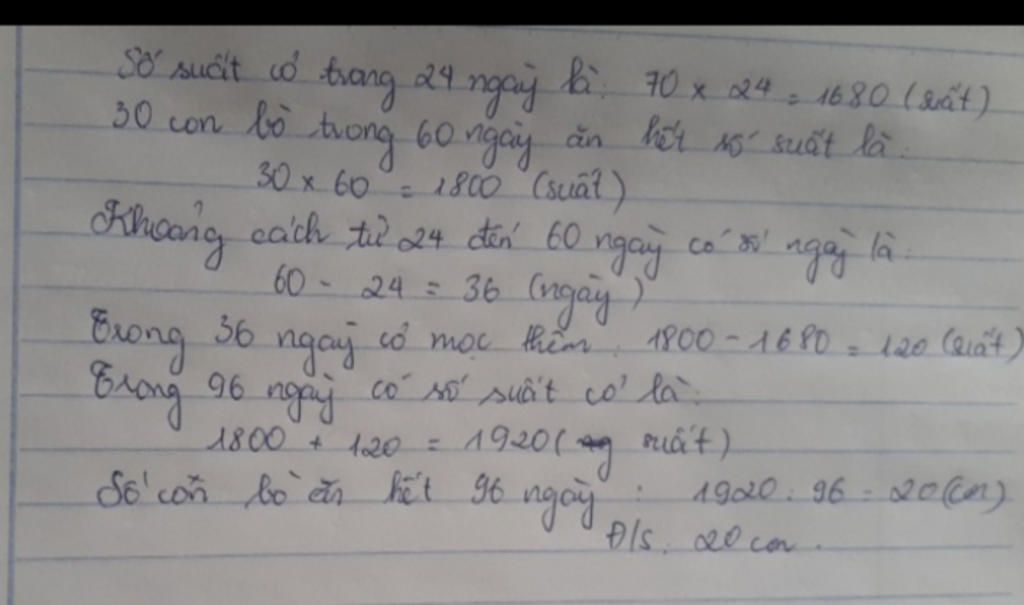 Số suất cỏ trong 24 ngày là: 70 x 24 = 1680 (suất)
30 con bò trong 60 ngày ăn hết số suất là:
30 x 60 = 1800 (suất)
Khoảng cách từ 24 đến 60 ngày có số ngày là:
60 - 24 = 36 (ngày)
Trong 36 ngày cỏ mọc thêm: 1800 - 1680 = 120 (suất)
Trong 96 ngày có số suất cỏ là:
1800 + 120 = 1920 (suất)
Số con bò ăn hết 96 ngày: 1920 : 96 = 20 (con)
Đ/s: 20 con.